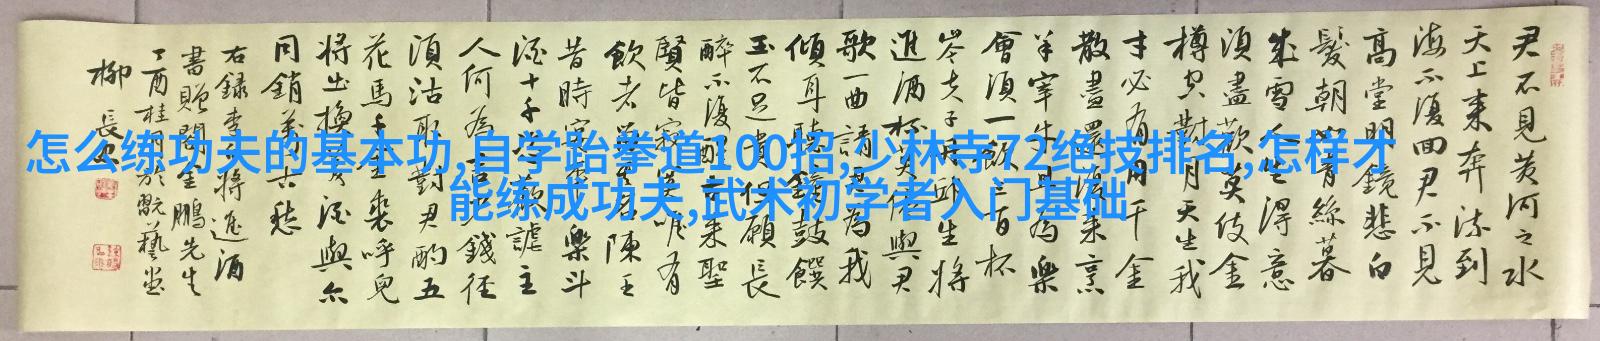 怎么练功夫的基本功,自学跆拳道100招,少林寺72绝技排名,怎样才
能练成功夫,武术初学者入门基础
君不見黃河之水
天上來奔流到
海不復回君不見
高堂明鏡悲白
髮朝如青絲暮
成雪人生得意
須盡歡莫使金
樽空對月天生我
才必有用千金
散盡還復來烹
羊宰牛且為樂
會須一飲三百杯
岑夫子丹邱生將
進酒杯莫停與君
歌一曲請君為我
傾耳聽鐘鼓饌
玉不足貴但願長
醉不復醒古來聖
賢皆寂寞唯有
飲者留其名陳王
昔時宴平樂斗
酒十千恣歡謔主
人何為言少錢徑
須沽取對君酌五
花馬千金裘呼兒
將出換美酒與爾
同銷萬古愁
右錄李白將進酒
書贈閻金鵬先生
丁酉桂月於翫藝堂
柳長